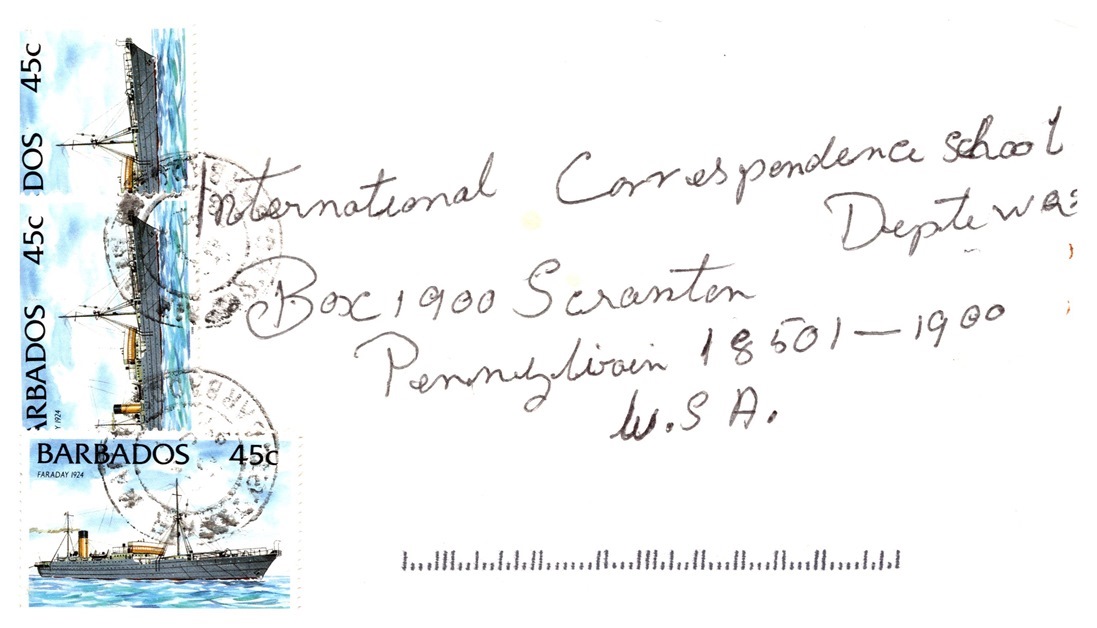 45c
DOS
45c
ARBADOS
Y 1924
BARBADOS 45c
FARADAY 1924
International Correspondence school
Depte
Box 1900 Scranton
Pennzylivain 18501-1900
U.S A.